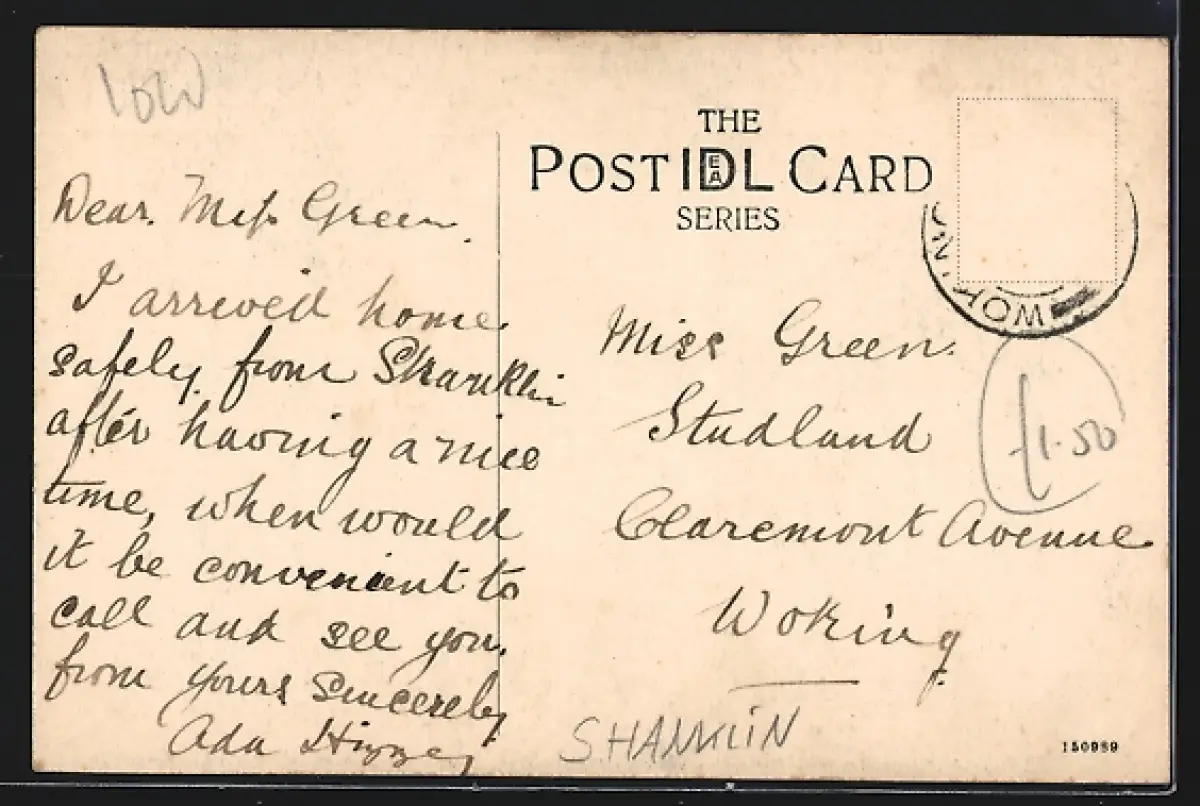 IOW
Dear. Miss Green.
I arrived home
safely. from Shanklin
after having a nice
time, when would
it be convenient to
call and see you.
from yours Sincerely
Ada
THE
POST IDEAL CARD
SERIES
WOKING
Miss Green.
Studland
Claremont Avenue
Woking
£1.50
SHANKLIN
150989